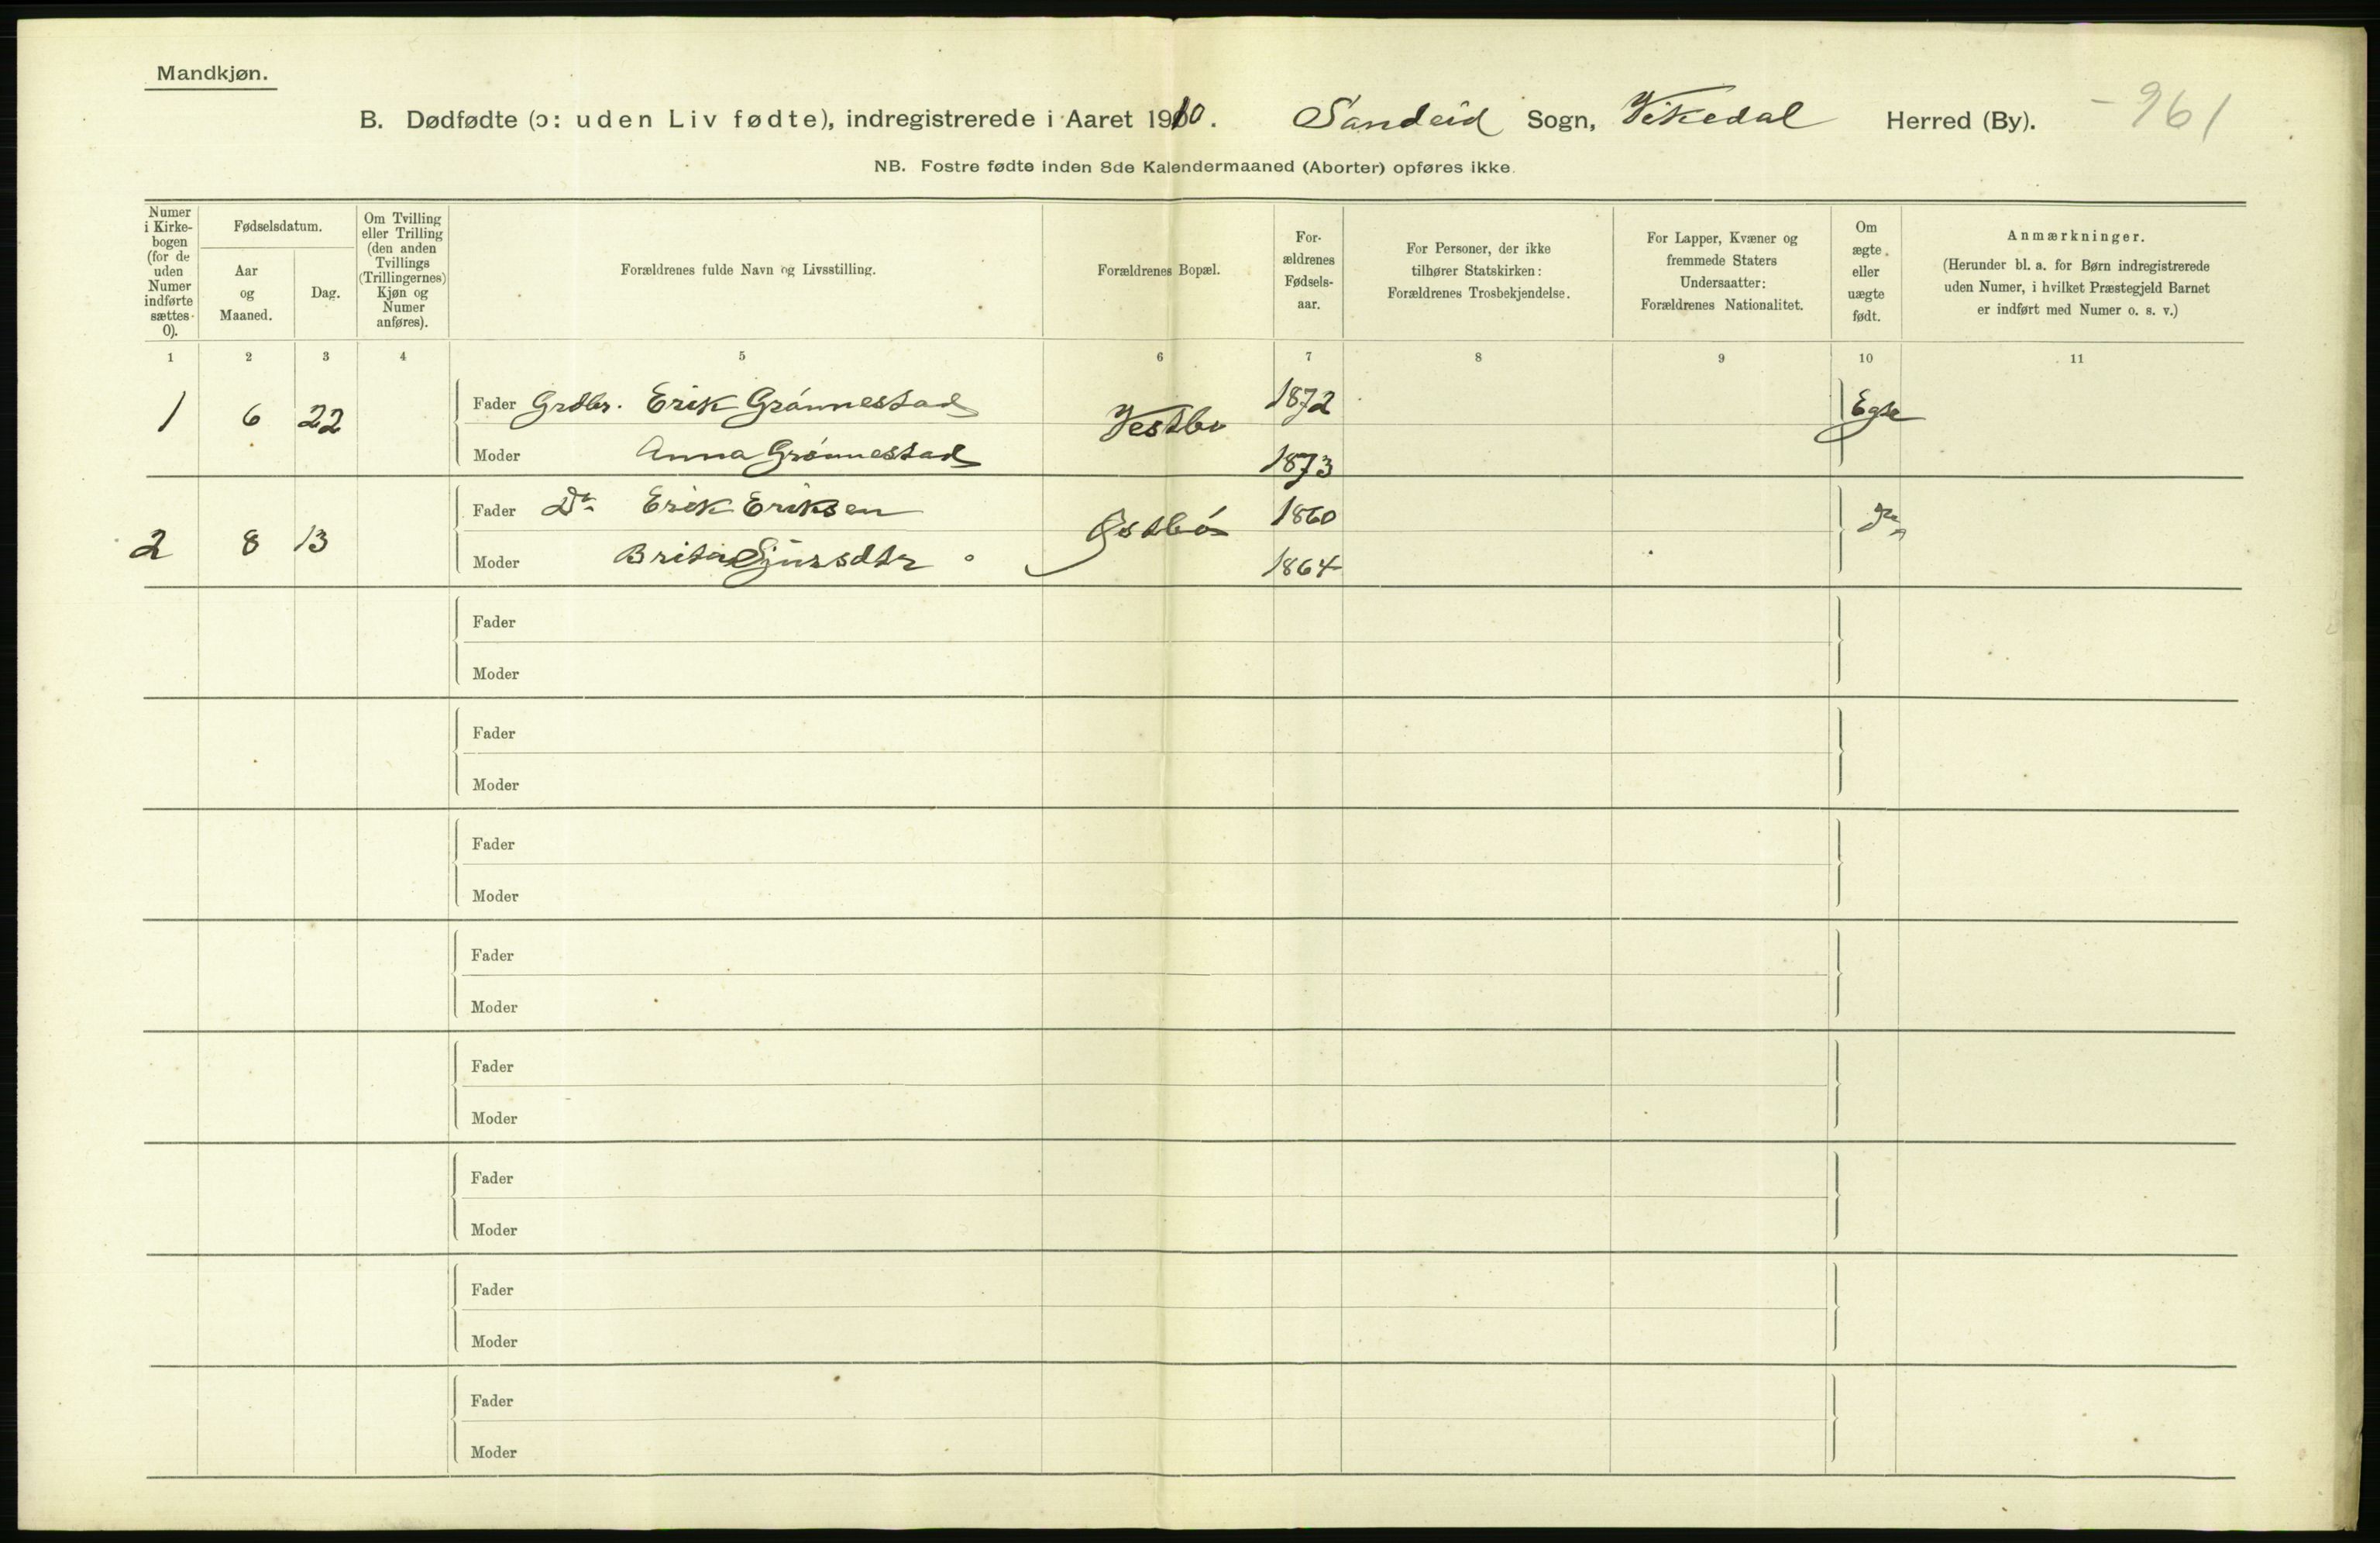 Mandkjøn.
B. Dødfødte (ɔ: uden Liv fødte), indregistrerede i Aaret 1910. Sandeid Sogn, Vikedal Herred (By). -961
NB. Fostre fødte inden 8de Kalendermaaned (Aborter) opføres ikke.
Numer i Kirke-bogen (for de uden Numer indførte sættes 0).
Fødselsdatum.
Aar og Maaned.
Dag.
Om Tvilling eller Trilling (den anden Tvillings (Trillingernes) Kjøn og Numer anføres).
Forældrenes fulde Navn og Livsstilling.
Forældrenes Bopæl.
For-ældrenes Fødsels-aar.
For Personer, der ikke tilhører Statskirken: Forældrenes Trosbekjendelse.
For Lapper, Kvæner og fremmede Staters Undersaatter: Forældrenes Nationalitet.
Om ægte eller uægte født.
Anmærkninger.
(Herunder bl. a. for Børn indregistrerede uden Numer, i hvilket Præstegjeld Barnet er indført med Numer o. s. v.)
1 2 3 4 5 6 7 8 9 10 11
1 6 22 Fader Grdbr. Erik Grónnestad Vestbø 1872 Egte
Moder Anna Grónnestad 1873
2 8 13 Fader Do Erik Eriksen Østbó 1860 Do
Moder Brita Sjursdtr 1864
Fader
Moder
Fader
Moder
Fader
Moder
Fader
Moder
Fader
Moder
Fader
Moder
Fader
Moder
Fader
Moder